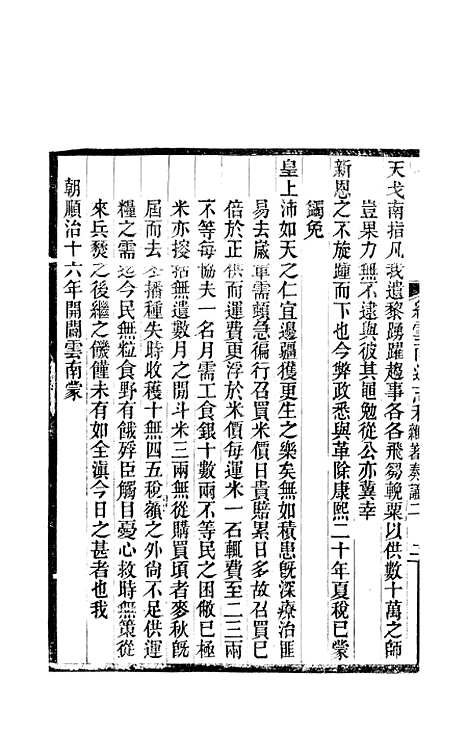 天戈南指凡我遺黎踴躍趨事各各飛芻輓粟以供數十萬之師
豈果力無不逮與彼其黽勉從公亦冀幸
新恩之不旋踵而下也今弊政悉與革除康熙二十年夏稅已蒙
蠲免
皇上沛如天之仁宜邊疆獲更生之樂矣無如積患旣深療治匪
易去歲軍需頗急徧行召買米價日貴賠累日多故召買已
倍於正供而運費更浮於米價每運米一石輒費至二三兩
不等每協夫一名月需工食銀十數兩不等民之困敝已極
米亦搜括無遺數月之閒斗米三兩無從購買頃者麥秋旣
屆而去冬播種失時收穫十無四五稅額之外尙不足供運
糧之需迄今民無粒食野有餓殍臣觸目憂心救時無策從
來兵燹之後繼之饑饉未有如全滇今日之甚者也我
朝順治十六年開闢雲南蒙
雲南通志 雜著奏議二 二